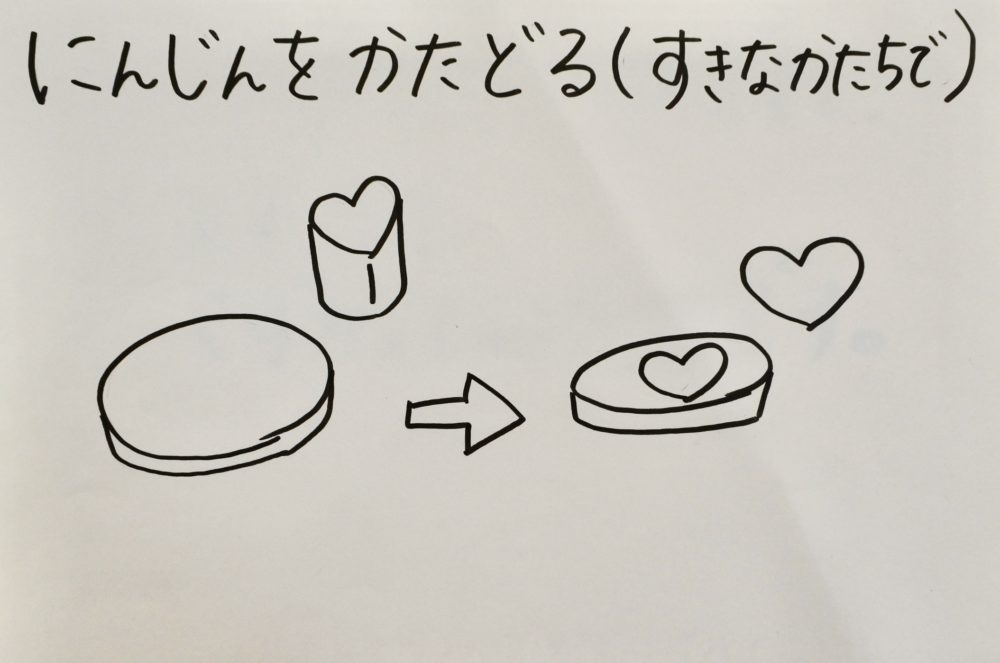 にんじんをかたどる(すきなかたちで)